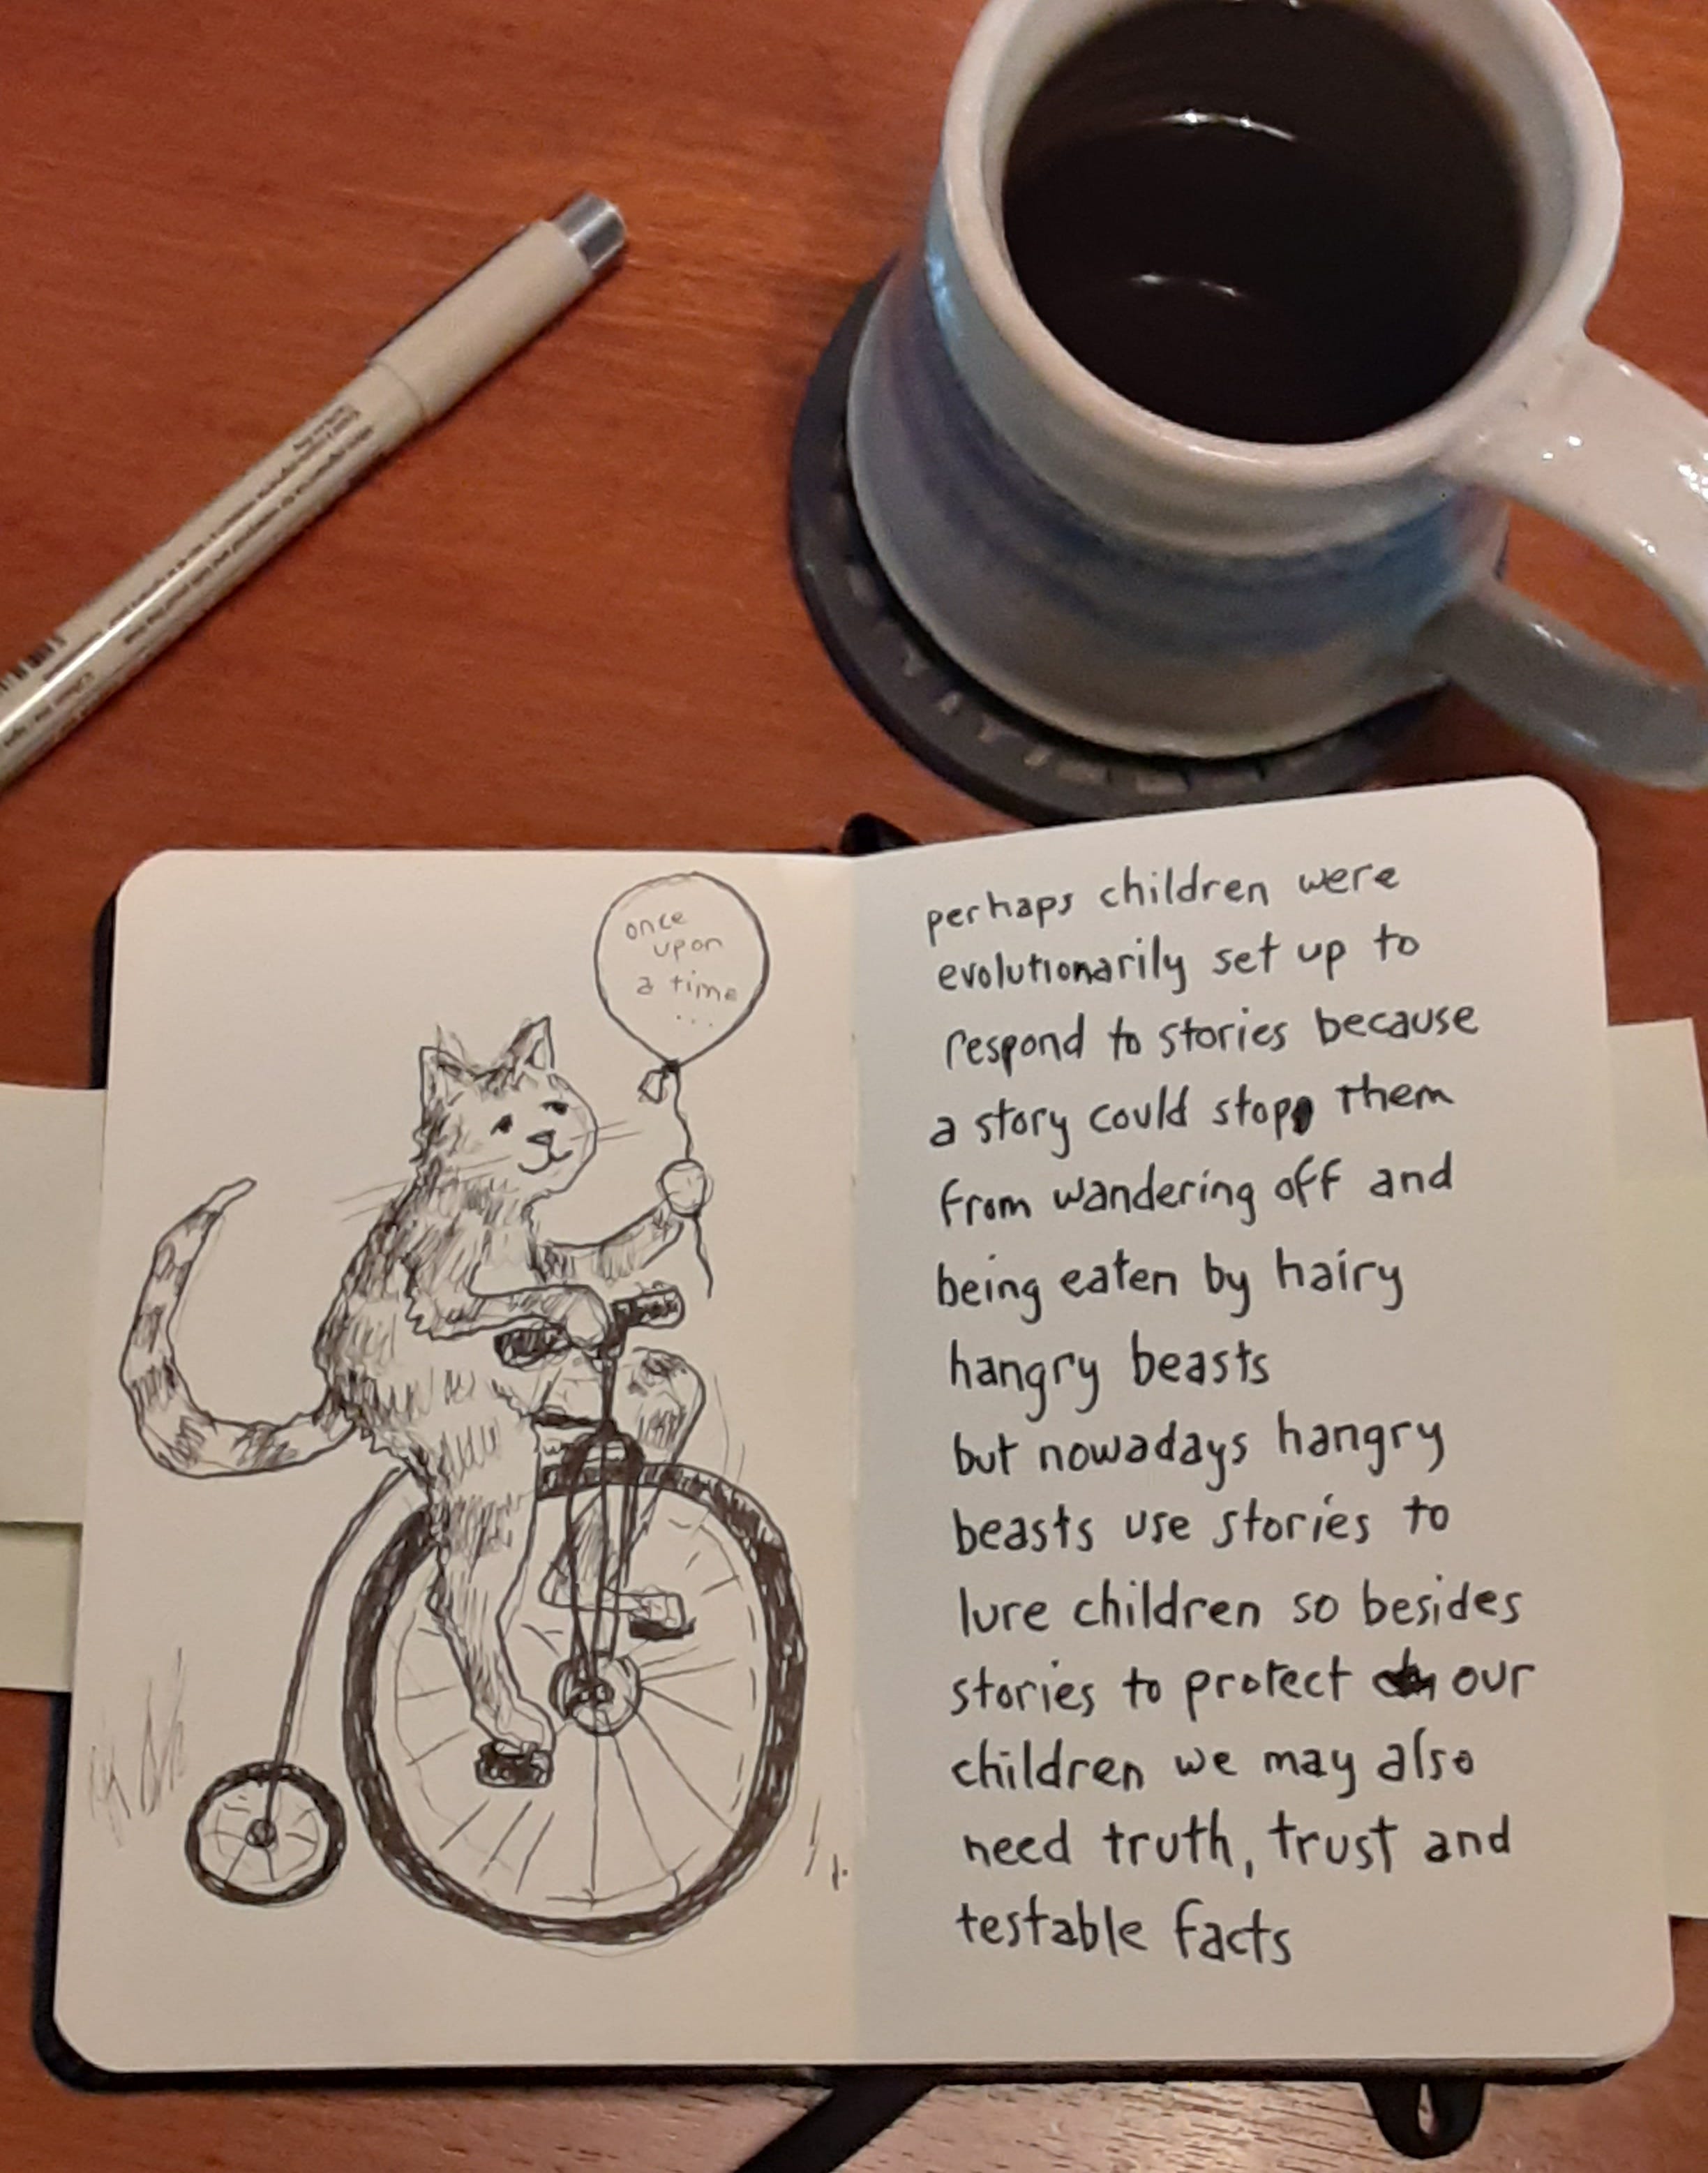 once
upon
a time
...
perhaps children were
evolutionarily set up to
respond to stories because
a story could stop them
from wandering off and
being eaten by hairy
hangry beasts
but nowadays hangry
beasts use stories to
lure children so besides
stories to protect our
children we may also
need truth, trust and
testable facts